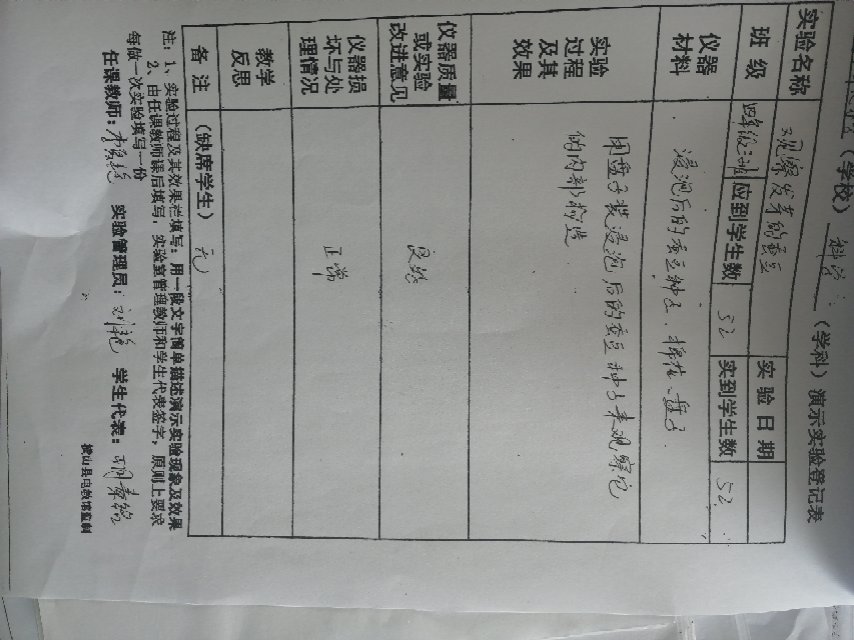 （学校） 科学 （学科）演示实验登记表
实验名称 观察发芽的蚕豆 实验日期
班级 四年级 应到学生数 52 实到学生数 52
仪器材料 浸泡后的蚕豆种子、 盘子
实验过程及其效果 用盘子装浸泡后的蚕豆种子来观察它的内部构造
仪器质量或实验改进意见 良好
仪器损坏与处理情况 正常
教学反思
备注 （缺席学生） 无
注：1、实验过程及其效果栏填写：用一段文字简单描述演示实验现象及效果
2、由任课教师课后填写，实验室管理教师和学生代表签字，原则上要求
每做一次实验填写一份
任课教师： 实验管理员：刘艳 学生代表：
横山县电教馆监制